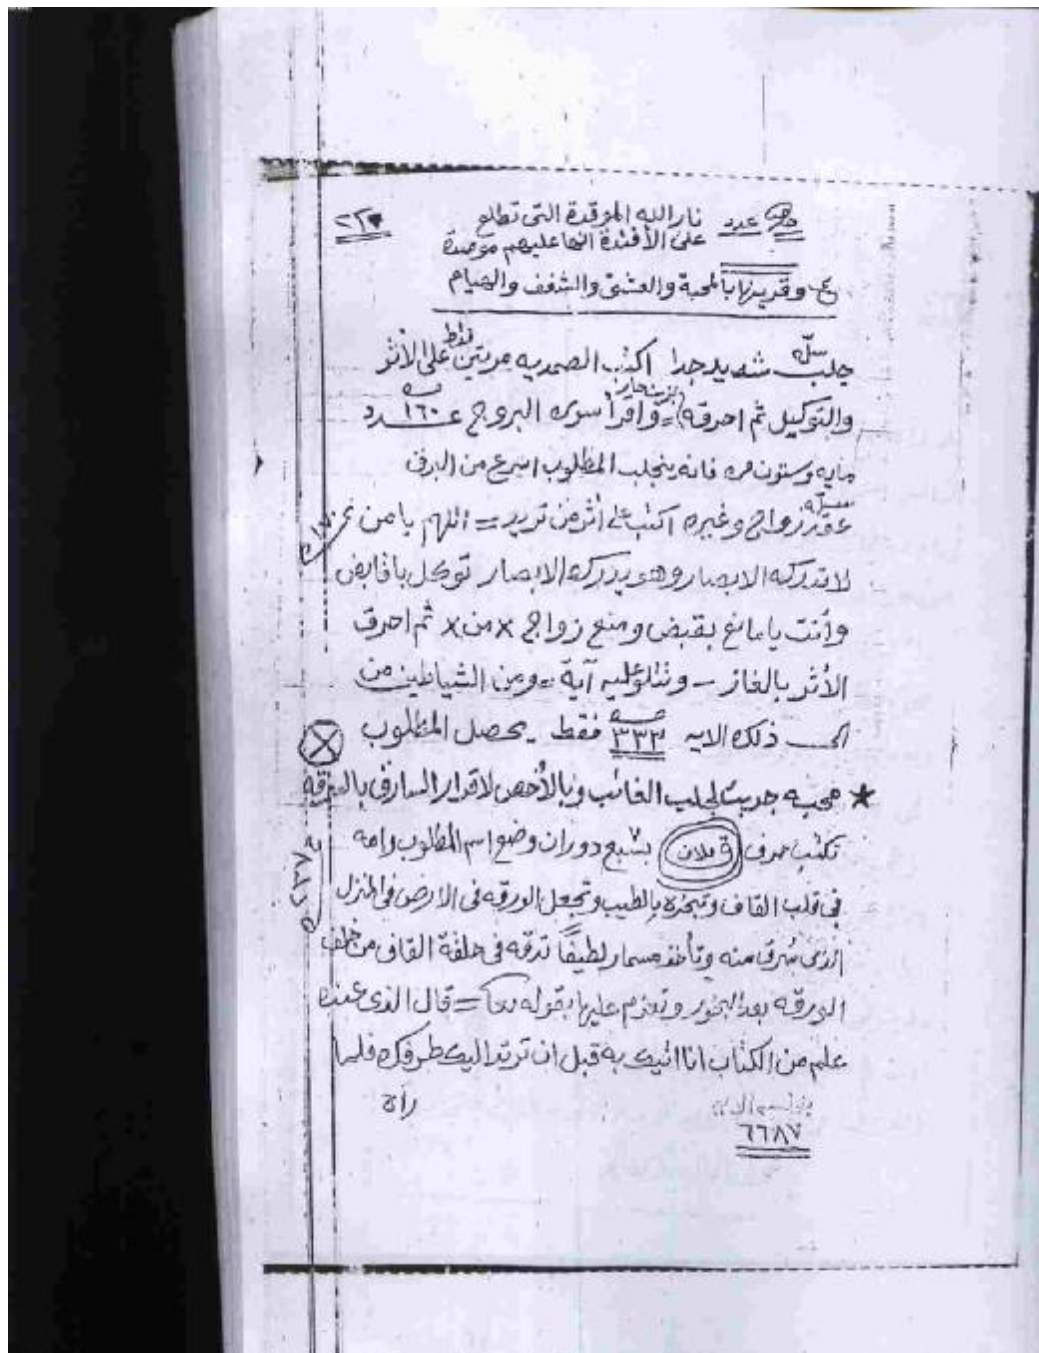 وهي عدد نار الله الموقدة التي تطلع
على الأفئدة انها عليهم موصدة
وقرينها بالمحبة والعشق والشغف والهيام
جلب شديد جدا اكتب الصمديه مرتين فقط على الأثر
والتوكيل ثم احرقه واقرأ سورة البروج عدد ١٦٠
مايه وستون مره فانه ينجلب المطلوب اسرع من البرق
عقد زواج وغيره اكتب على أثر من تريد = اللهم يا من
لا تدركه الابصار وهو يدرك الابصار توكل يا قابض
وأنت يا مانع بقبض ومنع زواج × من × ثم احرق
الأثر بالغاز - وتتلو عليه آية = ومن الشياطين من
الى ذلك الايه ٣٣٣ فقط يحصل المطلوب
★ مجربت لجلب الغائب وبالأخص لاقرار السارق بالسرقه
تكتب حرف ق فلان بسبع دوران وضع اسم المطلوب وامه
في قلب القاف وتبخره بالطيب وتجعل الورقه في الارض في المنزل
الذي سُرق منه وتأخذ مسمار لطيفاً تدقه في حلقة القاف من خلف
الورقه بعد البخور وتعزم عليها بقوله = قال الذي عنده
علم من الكتاب انا اتيك به قبل ان يرتد اليك طرفك فلما
رآه
٦٦٨٧